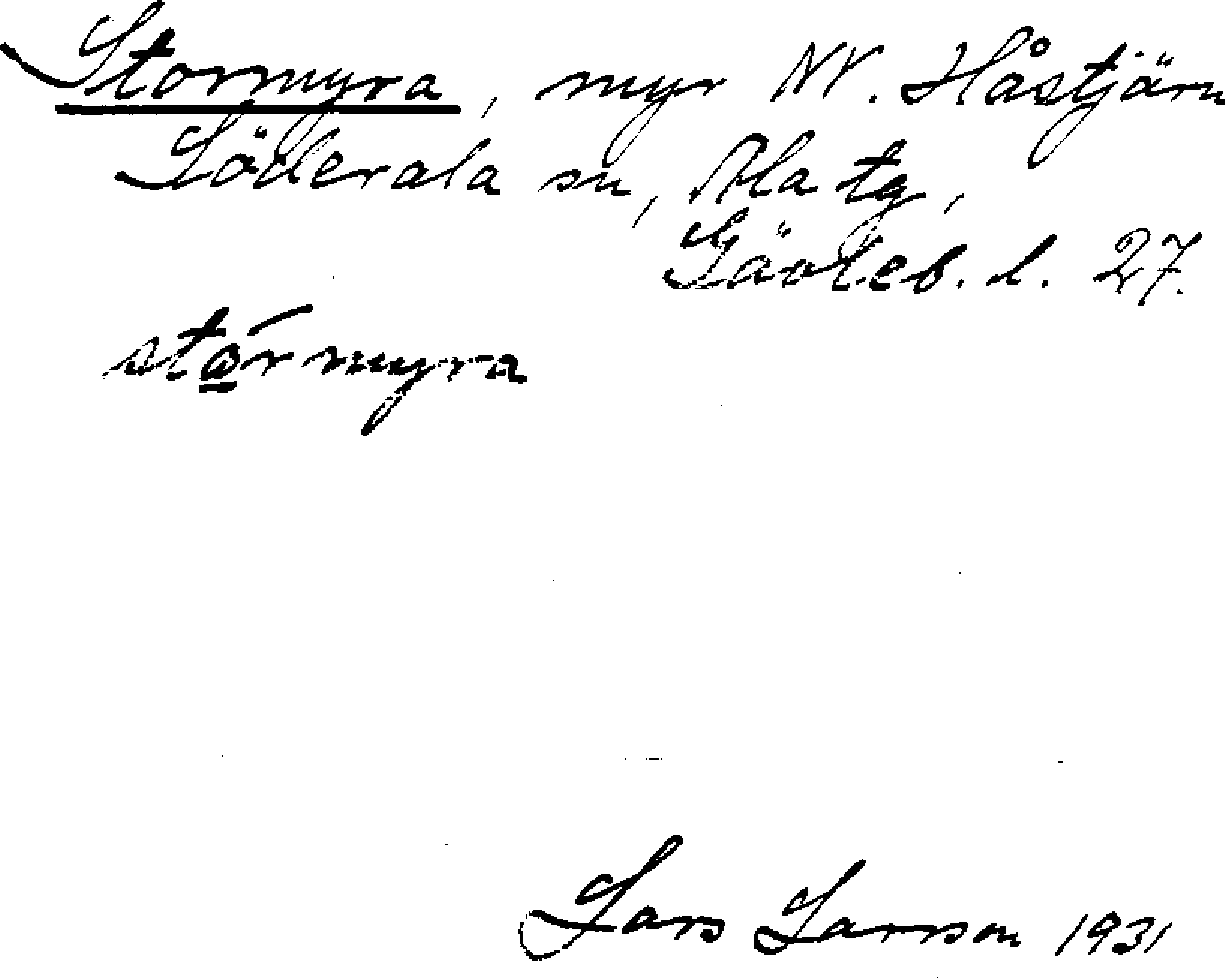 Stormyra, myr NV. Håstjärn
Söderala sn, Ala tg,
Gävleb. l. 27.
stormyra
Lars Larsson 1931